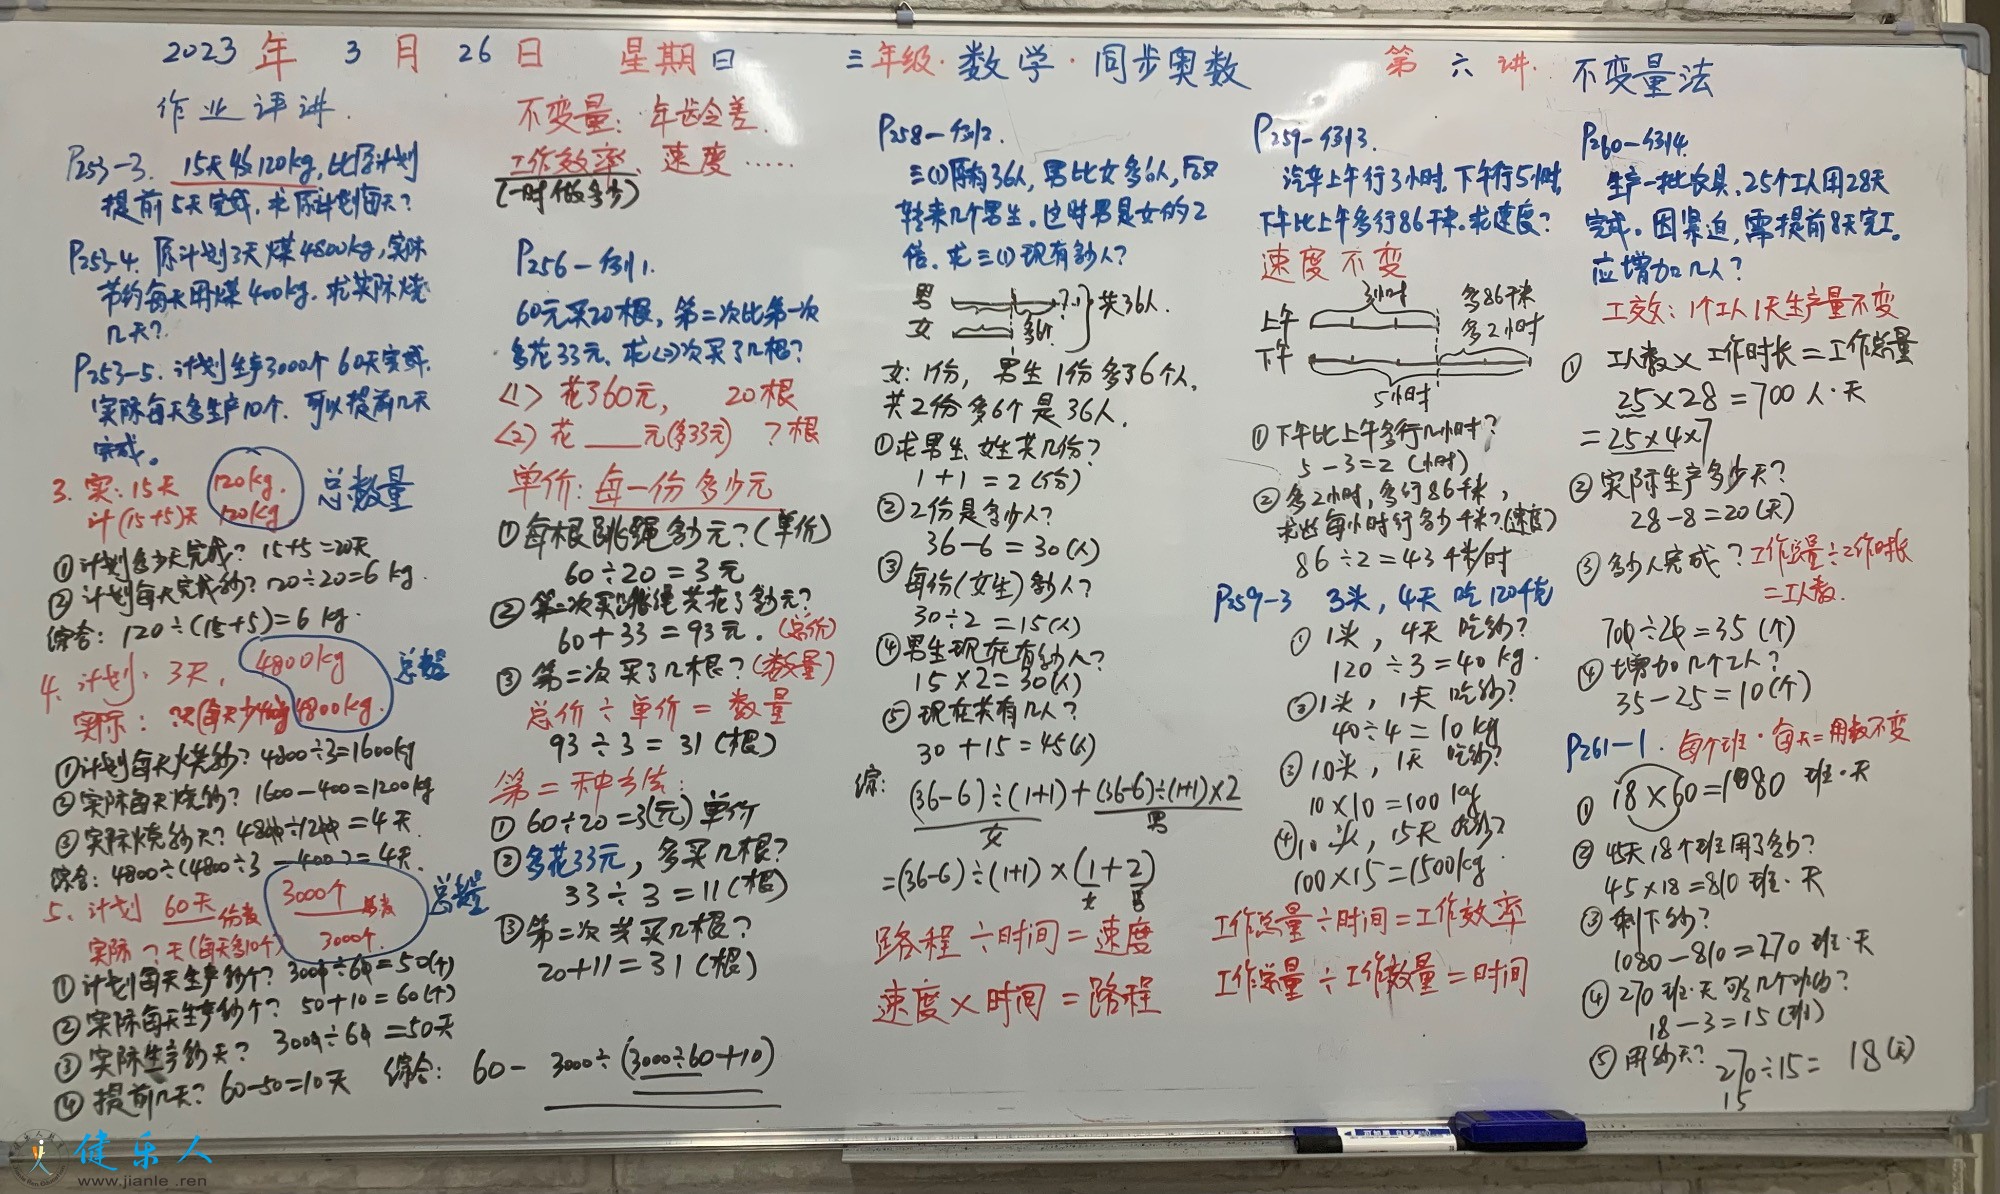 2023年3月26日 星期日 三年级·数学·同步奥数 第六讲. 不变量法
作业评讲.
P253-3. 15天修120kg,比原计划
提前5天完成.求原计划每天?
P253-4. 原计划3天煤4800kg,实际
节约每天用煤400kg.求实际烧
几天?
P253-5. 计划生产3000个60天完成.
实际每天多生产10个.可以提前几天
完成。
3. 实:15天 120kg. 总数量
计(15+5)天 120kg
①计划多少天完成? 15+5=20天
②计划每天完成多少? 120÷20=6 kg.
综合: 120÷(15+5)=6 kg.
4. 计划: 3天, 4800kg 总数量
实际: 4800kg.
①计划每天烧多少? 4800÷3=1600kg
②实际每天烧多少? 1600-400=1200kg
③实际烧多少天? 4800÷1200=4天.
综合: 4800÷(4800÷3-400)=4天.
5. 计划 60天份数 3000个总数 总数量
实际 ?天(每天多10个) 3000个.
①计划每天生产多少个? 3000÷60=50(个)
②实际每天生产多少个? 50+10=60(个)
③实际生产多少天? 3000÷60=50天
④提前几天? 60-50=10天 综合: 60-3000÷(3000÷60+10)
不变量: 年龄差.
工作效率、速度……
(一时做多少)
P256-例1.
60元买20根,第二次比第一次
多花33元.求(2)次买了几根?
<1> 花了60元, 20根
<2> 花___元(多33元) ?根
单价: 每一份多少元
①每根跳绳多少元?(单价)
60÷20=3元
②第二次买跳绳共花了多少元?
60+33=93元.(总价)
③第二次买了几根?(数量)
总价÷单价=数量
93÷3=31(根)
第二种方法:
①60÷20=3(元)单价
②多花33元,多买几根?
33÷3=11(根)
③第二次共买几根?
20+11=31(根)
P258-例2.
三(1)原有36人,男比女多6人,后又
转来几个男生.这时男是女的2
倍.求三(1)现有多少人?
男 ?人 共36人.
女 多6个
女:1份, 男生1份多了6个人.
共2份多6个是36人.
①求男生、女生共几份?
1+1=2(份)
②2份是多少人?
36-6=30(人)
③每份(女生)多少人?
30÷2=15(人)
④男生现在有多少人?
15×2=30(人)
⑤现在共有几人?
30+15=45(人)
综: (36-6)÷(1+1)+(36-6)÷(1+1)×2
女 男
=(36-6)÷(1+1)×(1+2)
女 男
路程÷时间=速度
速度×时间=路程
P259-例3.
汽车上午行3小时.下午行5小时,
下午比上午多行86千米.求速度?
速度不变
3小时 多86千米
上午 多2小时
下午
5小时
①下午比上午多行几小时?
5-3=2(小时)
②多2小时,多行86千米,
求出每小时行多少千米?(速度)
86÷2=43千米/时
P259-3 3头,4天吃120千克
①1头,4天吃多少?
120÷3=40 kg.
②1头,1天吃多少?
40÷4=10 kg
③10头,1天吃多少?
10×10=100 kg
④10头,15天吃多少?
100×15=1500kg.
工作总量÷时间=工作效率
工作总量÷工作数量=时间
P260-例4.
生产一批农具.25个工人用28天
完成。因紧迫,需提前8天完工。
应增加几人?
工效:1个工人1天生产量不变
①工人数×工作时长=工作总量
25×28=700 人·天
=25×4×7
②实际生产多少天?
28-8=20(天)
③多少人完成? 工作总量÷工作时长
=工人数.
700÷20=35(个)
④增加几个工人?
35-25=10(个)
P261-1. 每个班·每天=用数不变
①18×60=1080 班·天
②45天18个班用了多少?
45×18=810 班·天
③剩下多少?
1080-810=270 班·天
④270班·天
18-3=15(班)
⑤用多少天? 270÷15=18(天)
15
健乐人
www.jianle.ren